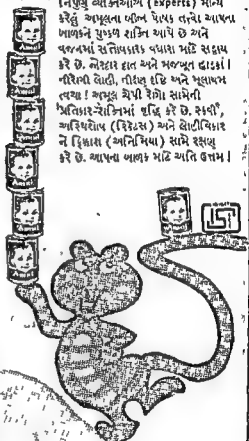 નિપુણ વ્યક્તિઓએ (Experts) માન્ય
કરેલું અમૂલના બીજા પોષક તત્વો આપના
બાળકને પુષ્કળ શક્તિ આપે છે અને
વજનમાં સંતોષકારક વધારા માટે સહાય
કરે છે. નોરદાર દાંત અને મજબૂત હાડકાં!
નીરોગી લોહી, તીક્ષ્ણ દ્રષ્ટિ અને મુલાયમ
ત્વચા! અમૂલ ચેપી રોગો સામેની
પ્રતિકાર-શક્તિમાં વૃદ્ધિ કરે છે. સ્કર્વી,
અસ્થિશોષ (રિકેટસ) અને લોહીવિકાર
ને ફિક્કાશ (અનિમિયા) સામે રક્ષણ
કરે છે. આપના બાળક માટે અતિ ઉત્તમ!
Amul
Amul
Amul
Amul
Amul
Amul